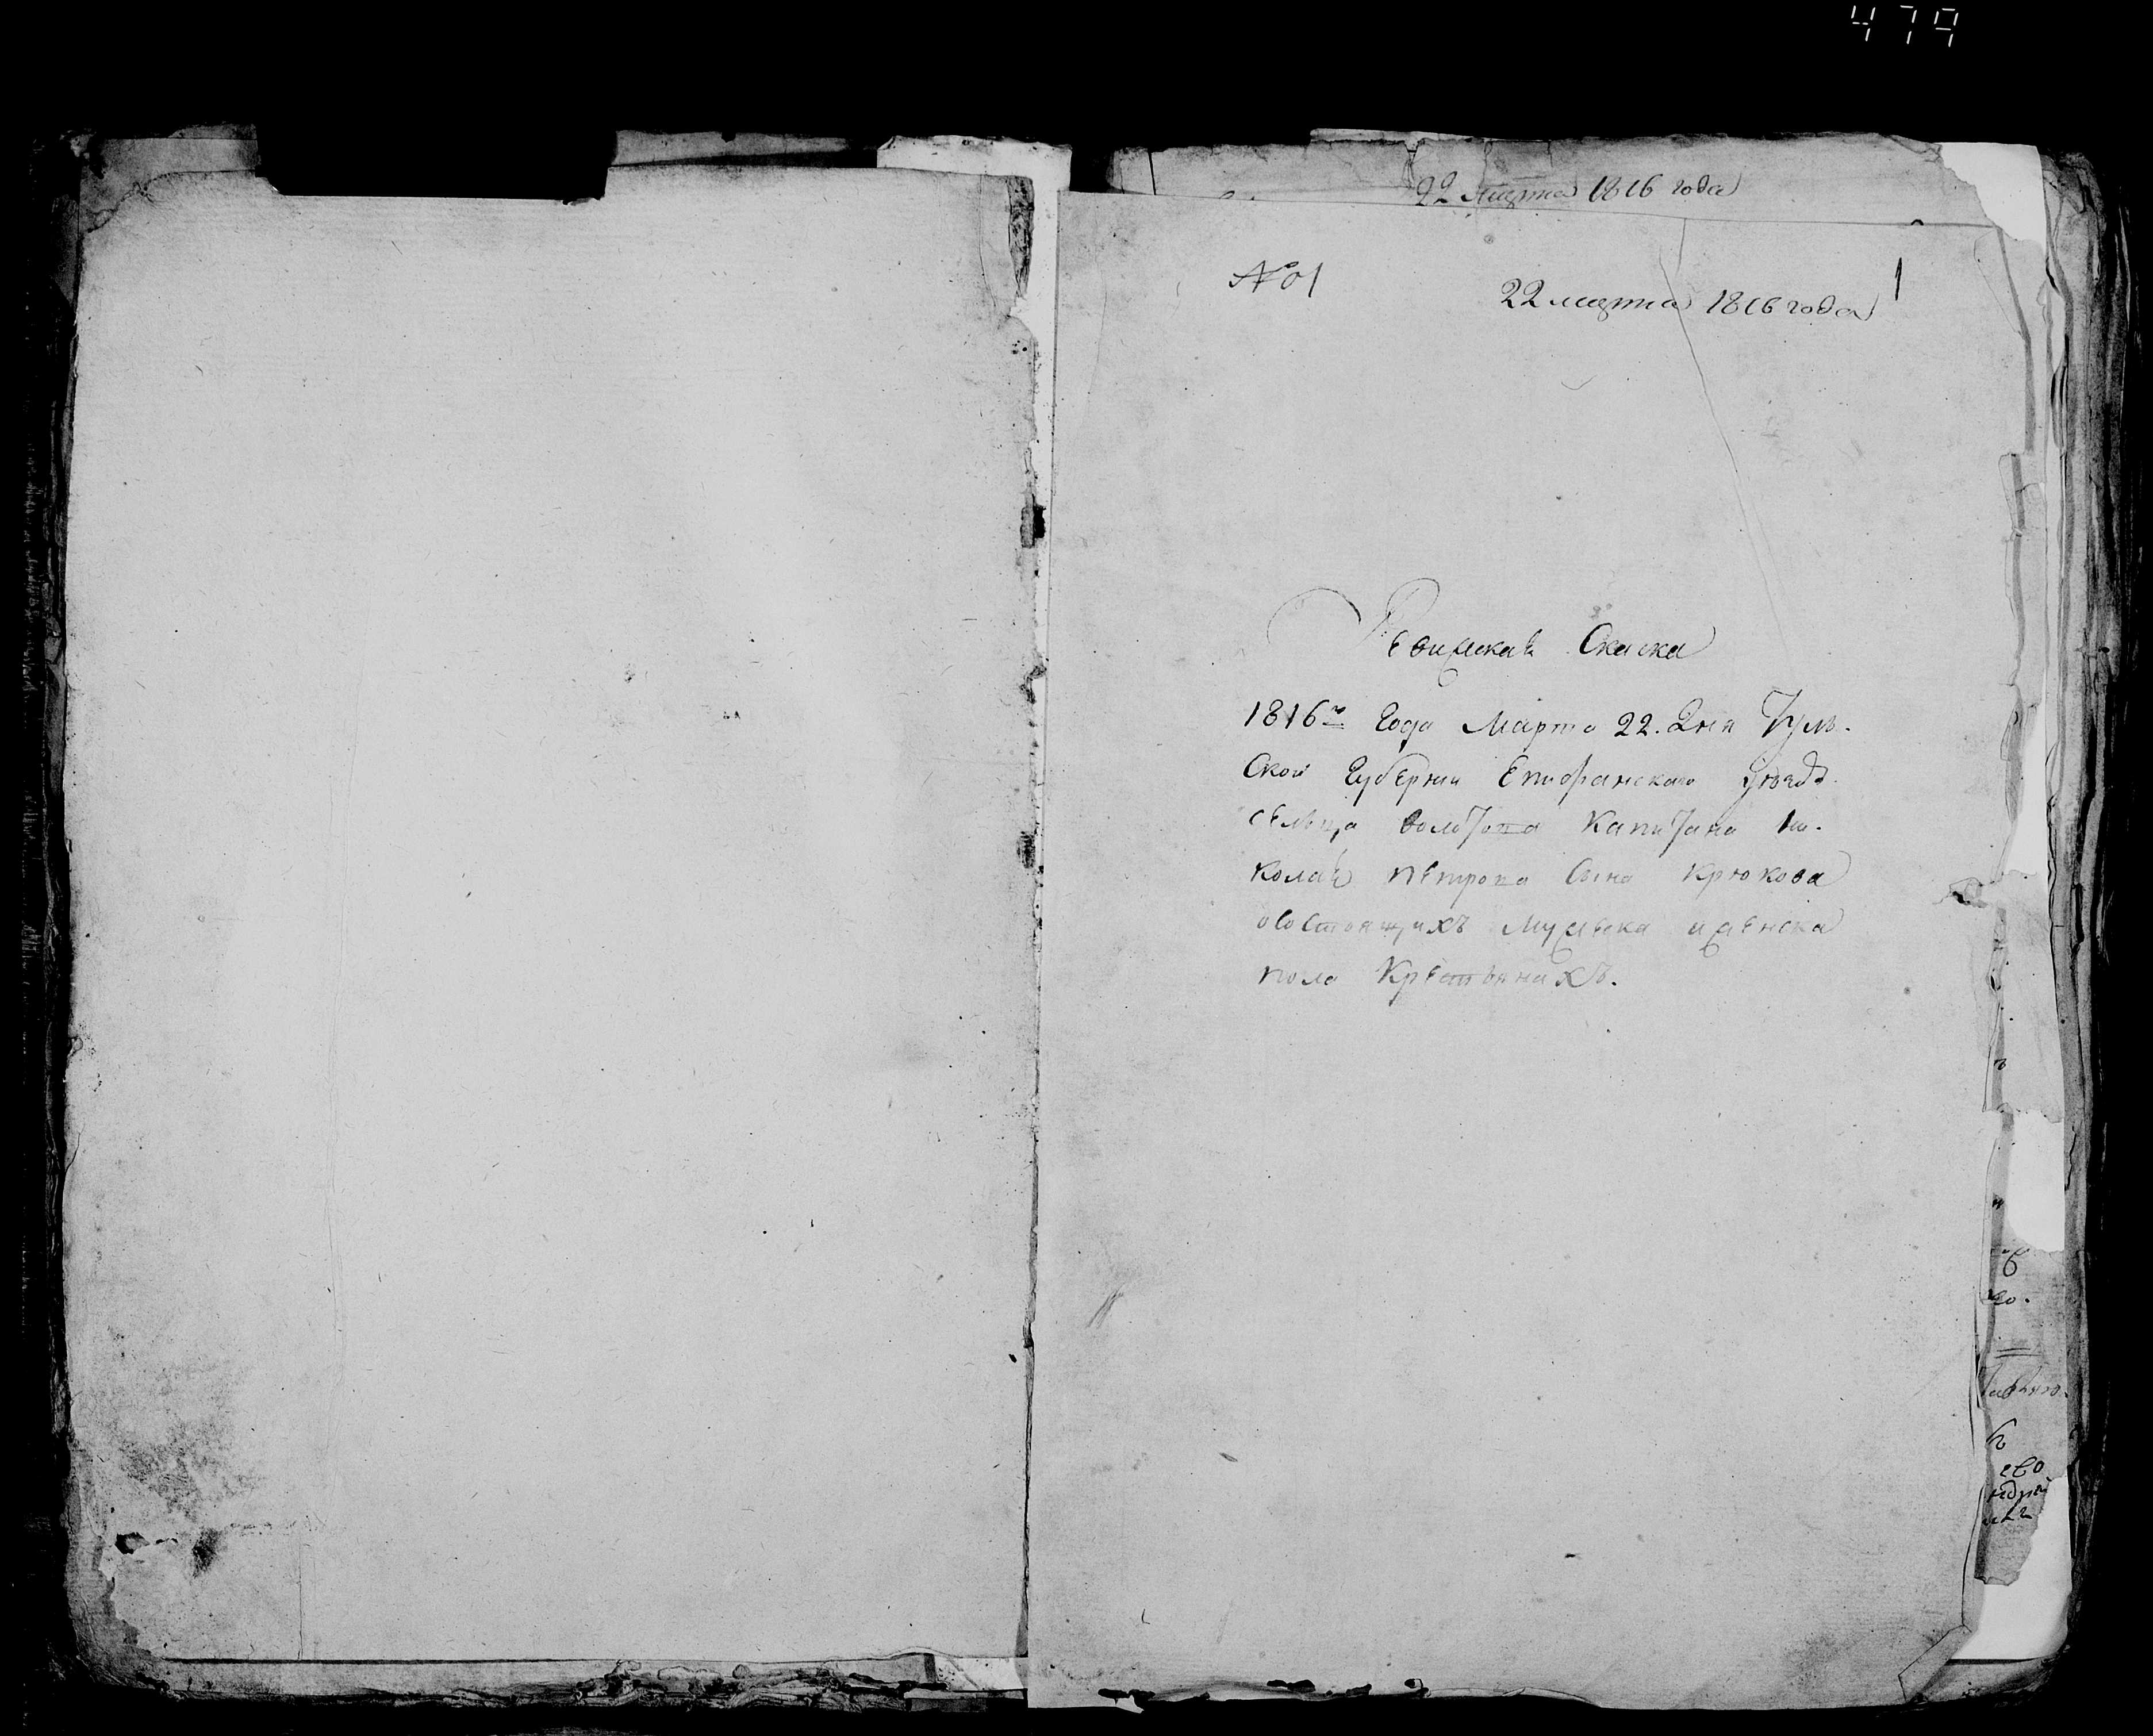 479
22 марта 1816 года
№ 1
1
22 марта 1816 года
Ревижская Скаска
1816го Года Марта 22. Дня Туль.
Ской Губернии Епифанскаго уезда
сельца Капитана Ни.
колая петрова Сына Крюкова
осостоящихъ мужска иженска
пола Крестьянахъ.